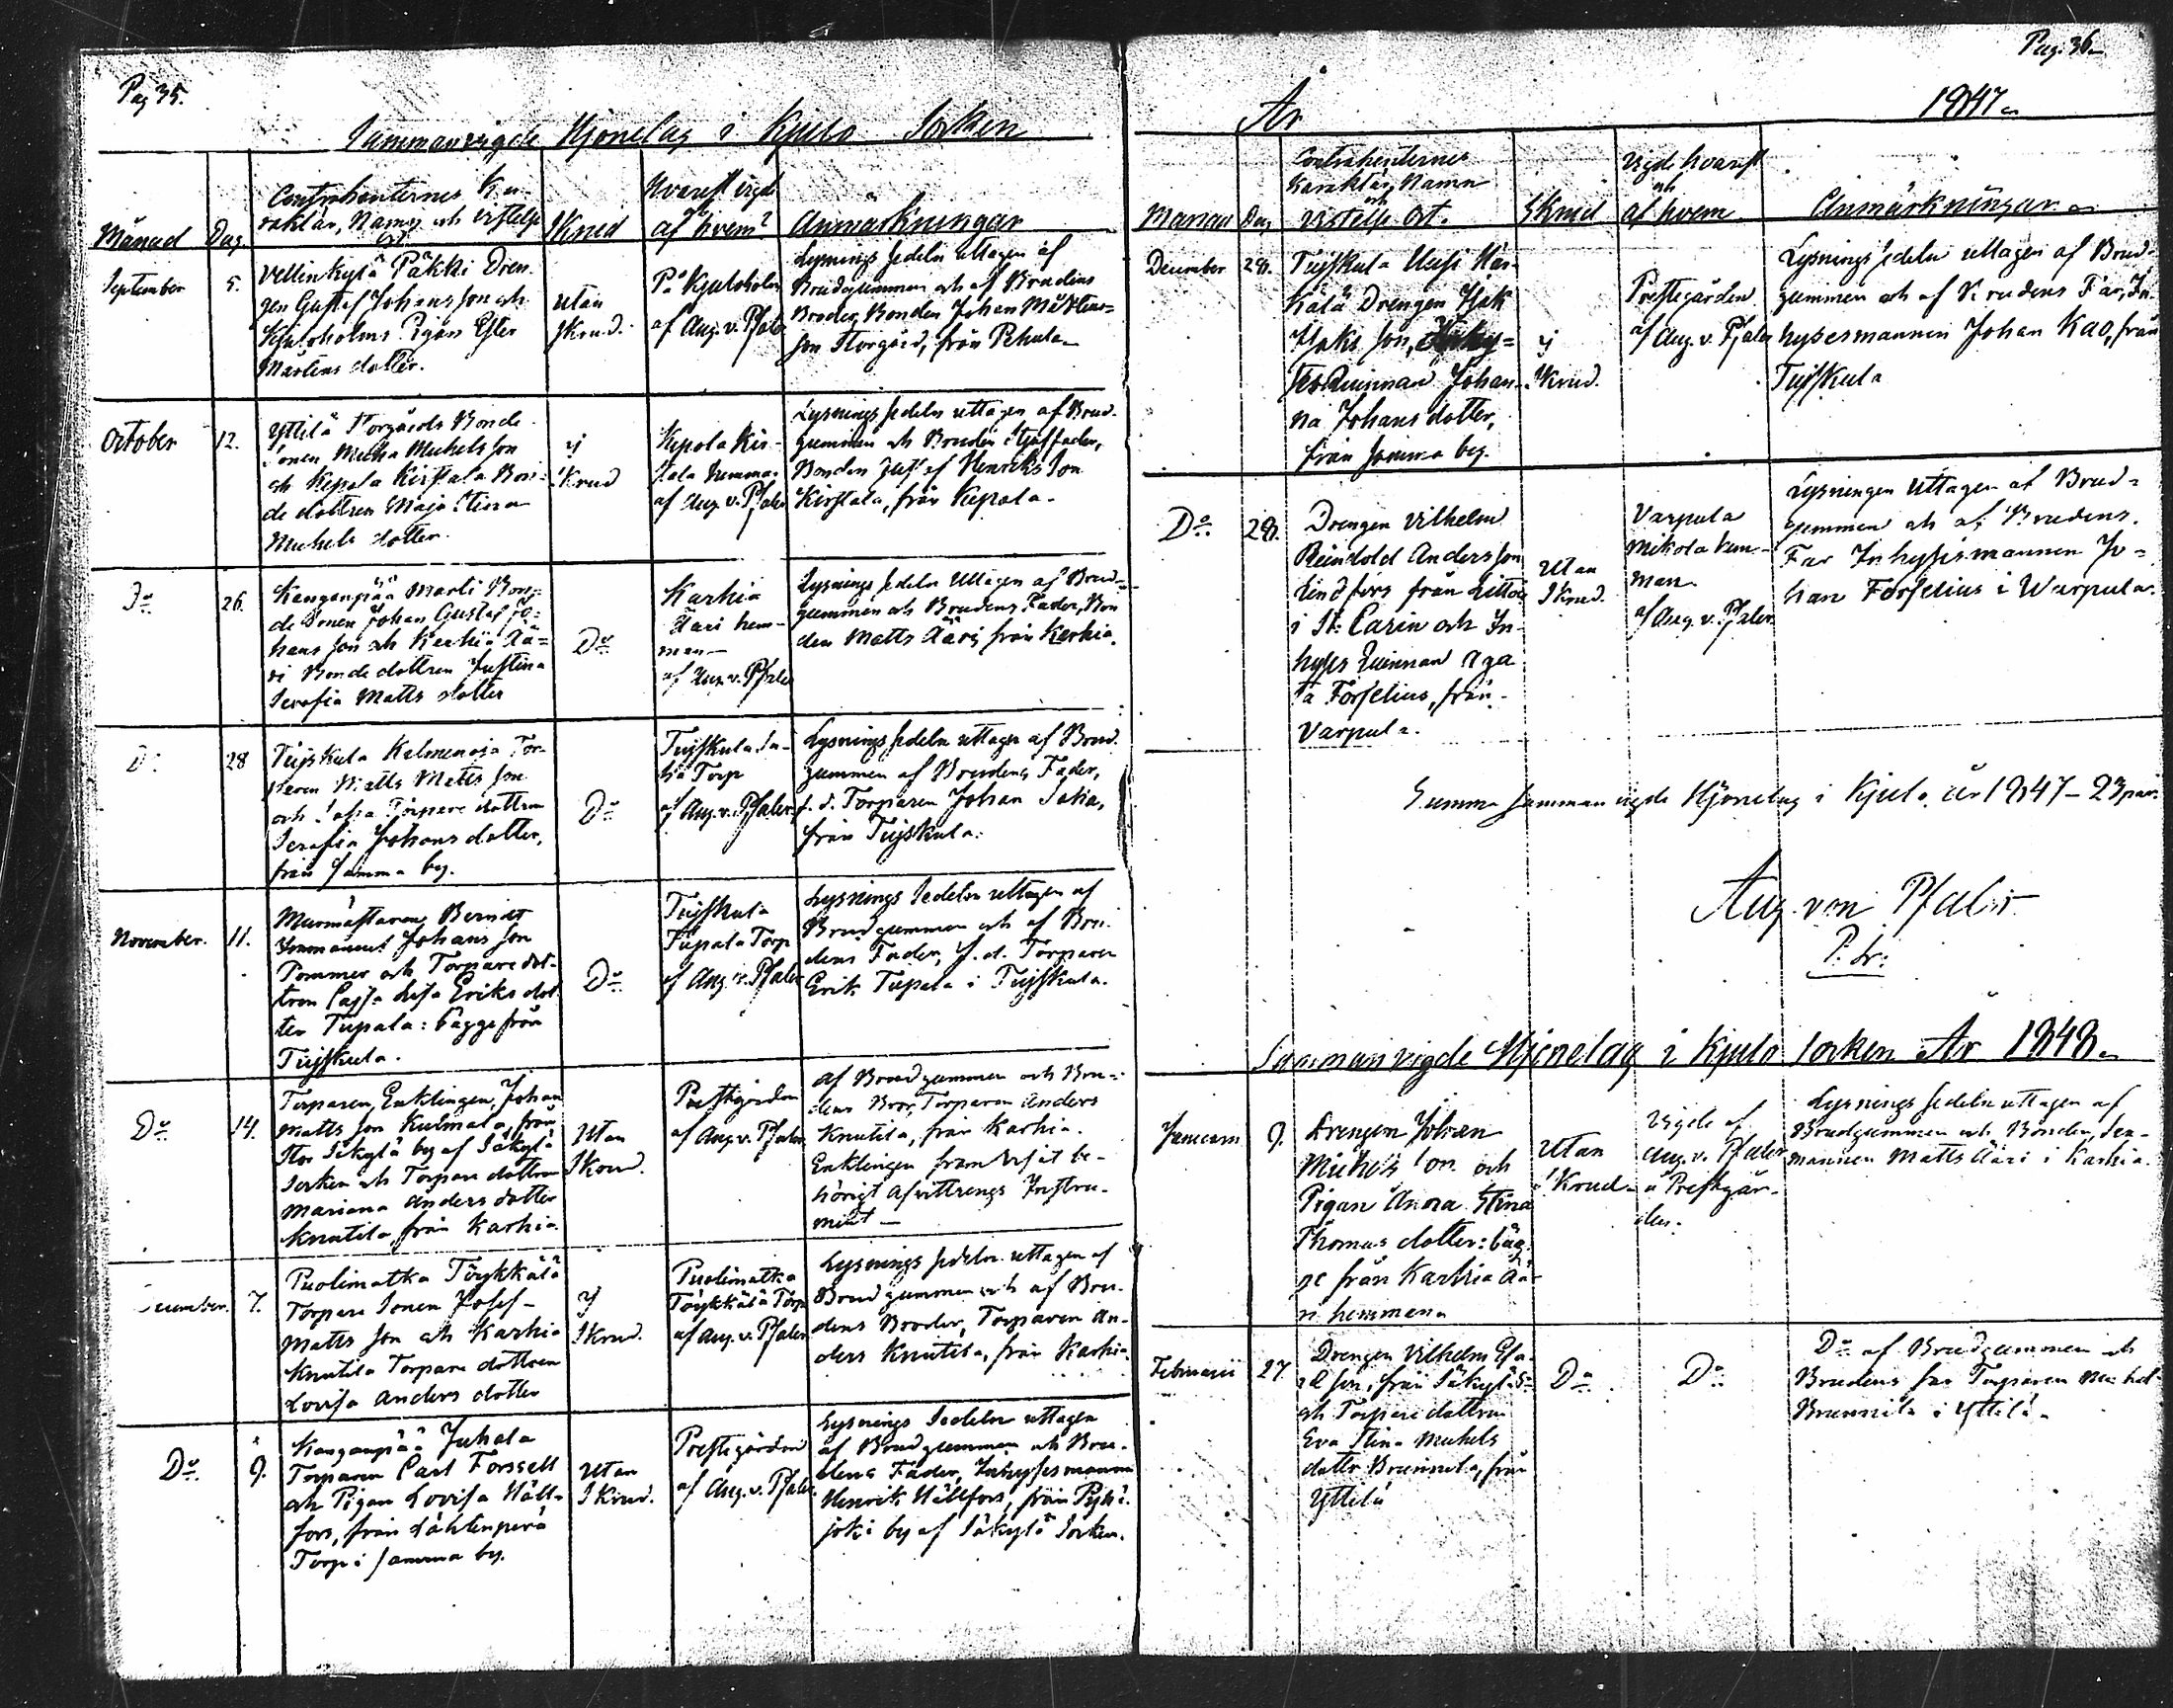 Pag 35.
Sammanvigde Hjonelag i Kjulo Socken
Månad
Dag
Contrahenternes Ka-
raktär, Namn och vistelse
ort
Skrud
Hvarest vigde
af hvem?
Anmärkningar
September
5.
Vellinkylä Päkki Dren-
gen Gustaf Johansson och
Kjuloholms Pigan Ester
Mårtens dotter.
Utan
Skrud.
På Kjuloholm
af Aug. v. Pfaler
Lysnings sedeln uttagen af
Brudgummen och af Brudens
Broder, Bonden Johan Mårtens-
son Storgård, från
October
12.
Yttilä Storgårds Bonde-
sonen Michel Michelsson
och Kepola Kirstala Bon-
de dottren Maja Stina
Michels dotter.
i
Skrud
Kepola Kir-
stala hemman
af Aug. v. Pfaler
Lysnings sedeln uttagen af Brud-
gummen och Brudens Styffader,
Bonden Gustaf Henriksson
Kirstala, från Kepola.
Do
26.
Kanganpää Marti Bon-
de Sonen Johan Gustaf Jo-
hansson och Karhia Ää-
ri Bonde dottren Justina
Serafia Matts dotter
Do
Karhia
Ääri hem-
man
af Aug. v. Pfaler
Lysnings sedeln uttagen af Brud-
gummen och Brudens Fader, Bon
den Matts Ääri från Karhia.
Do
28
Tuiskula Kalmenoja Tor-
paren Matts Matts son
och Torpare dottren
Serafia Johans dotter,
från samma by.
Do
Tuiskula
Torp
af Aug. v. Pfaler
Lysnings sedeln uttagen af Brud-
gummen af Brudens Fader,
f. d. Torparen Johan
från Tuiskula.
November.
11.
Murmästaren Berndt
Johansson
Pommer och Torpare dot-
tren Cajsa Lisa Eriks dot
ter Tupala: bägge från
Tuiskula.
Do
Tuiskula
Tupala Torp
af Aug. v. Pfaler
Lysnings Sedeln uttagen af
Brudgummen och af Bru-
dens Fader, f. d. Torparen
Erik Tupala i Tuiskula.
Do
14.
Torparen, Enklingen, Johan
Matts son Kulmala, från
Stor Säkylä by af Säkylä
Socken och Torpare dottren
Mariana Anders dotter
Knutila, från Karhia
Utan
Skrud.
Prestgården
af Aug. v. Pfaler
af Brudgummen och Bru-
dens Bror, Torparen Anders
Knutila, från Karhia.
Enklingen framvist be-
hörigt Afvittrings Instru-
ment —
December.
7.
Puolimatka Töykkälä
Torpare Sonen Josef
Matts son och Karhia
Knutila Torpare dottren
Lovisa Anders dotter
i
Skrud.
Puolimatka
Töykkälä Torp
af Aug. v. Pfaler
Lysnings sedeln uttagen af
Brudgummen och af Bru-
dens Broder, Torparen An-
ders Knutila, från Karhia.
Do
9.
Kanganpää Juhala
Torparen Carl Forssell
och Pigan Lovisa Häll-
fors, från Lähteenperä
Torp i samma by.
Utan
Skrud.
Prestegården
af Aug. v. Pfaler
Lysnings Sedeln uttagen
af Brudgummen och Bru-
dens Fader, Inhysesmannen
Henrik Hällfors, från Pyhä-
joki by af Säkylä Socken.
Pag. 36
År
1847
Månad
Dag
Contrahenternes
Karaktär, Namn
och
vistelse Ort.
Skrud
Vigde hvarest
och
af hvem
Anmärkningar
December
28.
Tuiskula Uusi Här-
kälä Drengen Isak
Isaks son,
Qvinnan Johan-
na Johans dotter,
från samma by.
i
Skrud.
Prestegården
af Aug. v. Pfaler
Lysnings sedeln uttagen af Brud-
gummen och af Brudens Far, In-
hysesmannen Johan Kao, från
Tuiskula
Do
28.
Drengen Vilhelm
Reindold Andersson
Lindfors från Littois
i St: Carin och In-
hyses Qvinnan Aga
ta Forselius, från
Varpula.
Utan
Skrud.
Varpula
Mikola hem-
man
af Aug. v. Pfaler
Lysningen uttagen af Brud-
gummen och af Brudens
Far Inhysesmannen Jo-
han Forselius i Warpula.
Summa sammanvigde Hjonelag i Kjulo år 1847 – 23 par.
Aug. von Pfaler
P. Sr:
Sammanvigde Hjonelag i Kjulo Socken År 1848.
Januarii
9.
Drengen Johan
Michels son och
Pigan Anna Stina
Thomas dotter: bäg-
ge från Karhia Ää-
ri hemman
Utan
Skrud
Vigde af
Aug. v. Pfaler
i Prestgår-
den.
Lysnings sedeln uttagen af
Brudgummen och Bonden,
mannen Matts Ääri i Karhia.
Februarii
27.
Drengen Vilhelm Esa-
ias son, från Säkylä S:n
och Torpare dottren
Eva Stina Michels
dotter Brunnila, från
Yttilä
Do
Do
Do af Brudgummen och
Brudens far Torparen Michel
Brunnila i Yttilä